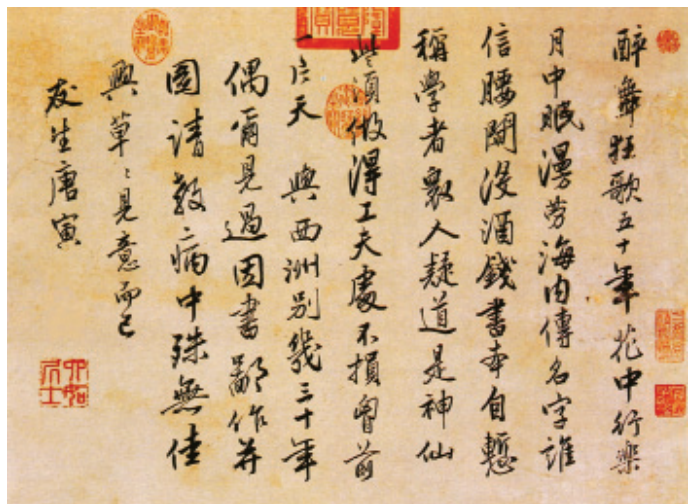 醉舞狂歌五十年花中行樂
月中眠漫勞海內傳名字誰
信腰間沒酒錢書本自慙
稱學者衆人疑道是神仙
些須做得工夫處不損胷前
一片天 與西洲別幾三十年
偶爾見過因書鄙作并
圖請教病中殊無佳
興草〻見意而已
友生唐寅
六如居士